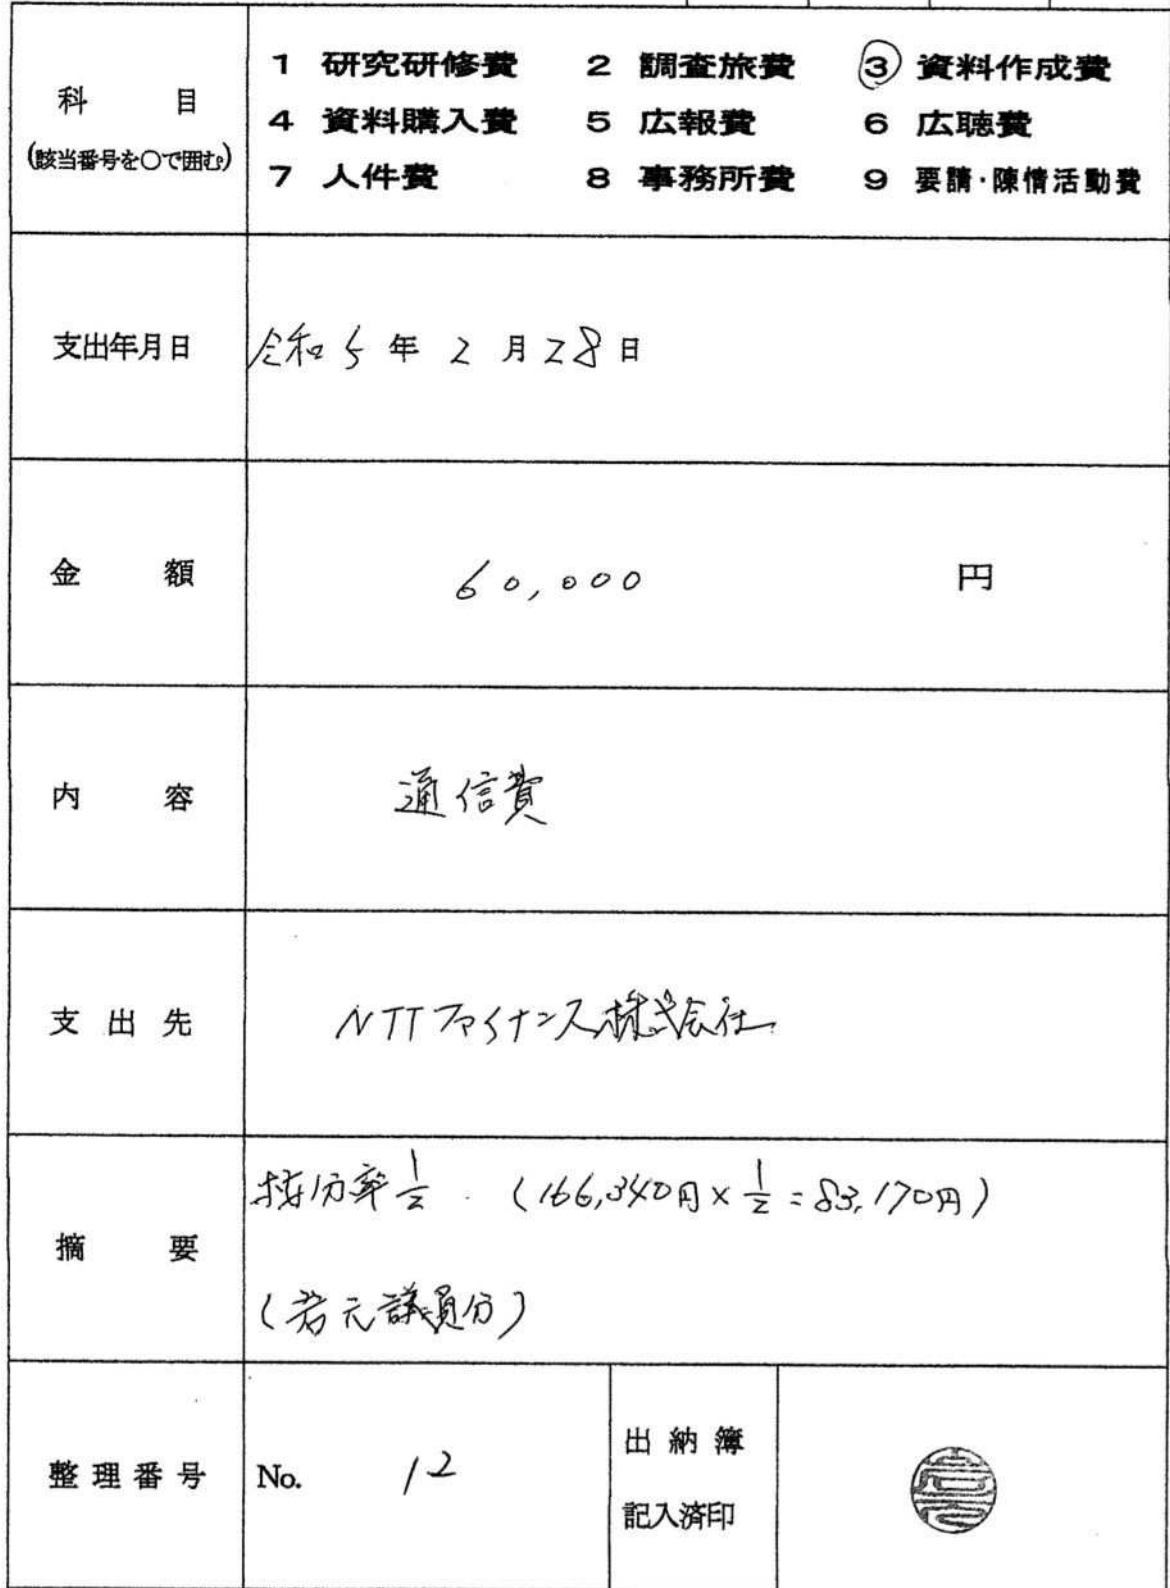 科 目
(該当番号を○で囲む。)
1 研究研修費 2 調査旅費 ③ 資料作成費
4 資料購入費 5 広報費 6 広聴費
7 人件費 8 事務所費 9 要請・陳情活動費
支出年月日
令和5年2月28日
金 額
60,000 円
内 容
通信費
支出先
NTTファイナンス株式会社
摘 要
按分率1/2 (166,340円×1/2=83,170円)
(若元議員分)
整理番号
No. 12
出納簿
記入済印